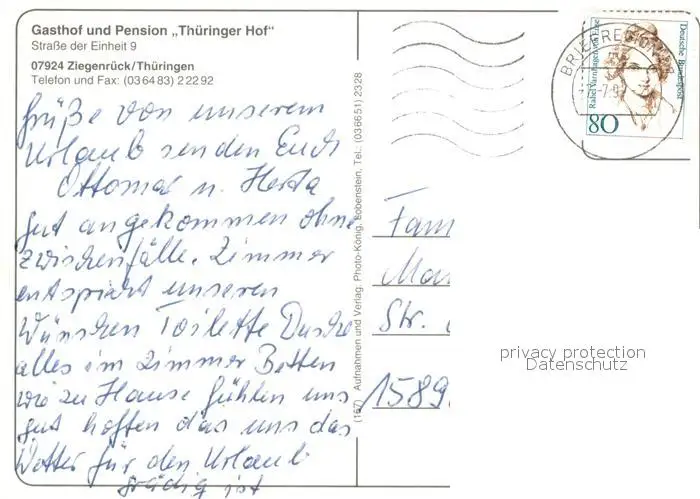 Gasthof und Pension „Thüringer Hof"
Straße der Einheit 9
07924 Ziegenrück/Thüringen
Telefon und Fax: (03 64 83) 2 22 92
Grüße von unserem
Urlaub senden Euch
Ottomar u. Herta
gut angekommen ohne
zwischenfälle. Zimmer
entspricht unseren
Wünschen Toilette Dusche
alles im Zimmer Betten
wie zu Hause fühlen uns
gut hoffen das uns das
Wetter für den Urlaub
gnädig ist
(167) Aufnahmen und Verlag: Photo-König, Lobenstein, Tel.: (036651) 2328
BRIEFREGION
Deutsche Bundespost
Rahel Varnhagen von Ense
80
Fam
Str.
1589
privacy protection
Datenschutz